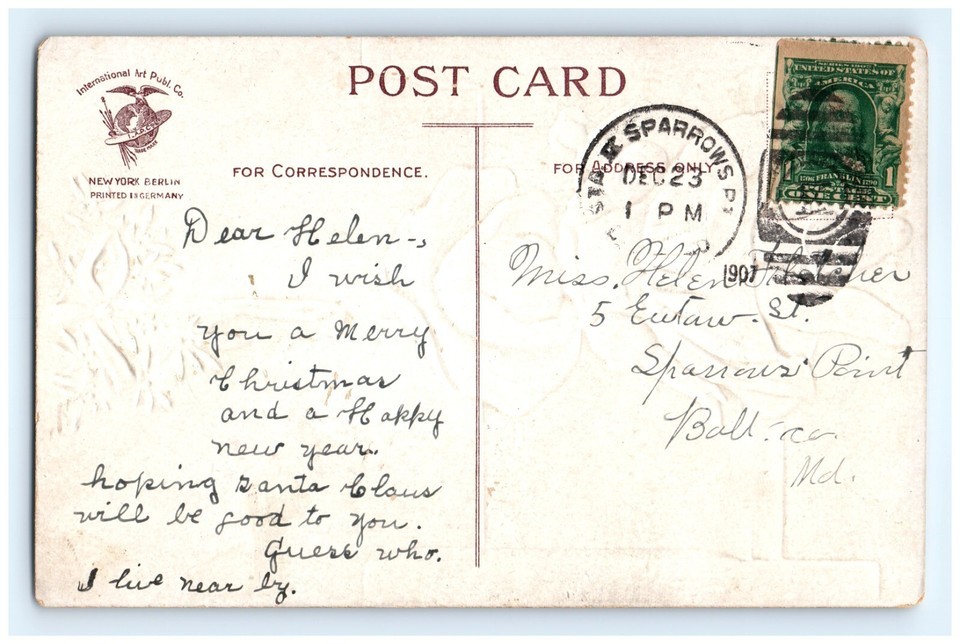 International Art Publ. Co.
TRADE MARK
NEW YORK BERLIN
PRINTED IN GERMANY
POST CARD
FOR CORRESPONDENCE.
FOR ADDRESS ONLY
Dear Helen-,
I wish
you a Merry
Christmas
and a Happy
new year.
hoping Santa Claus
will be good to you.
Guess who.
I live near by.
SPARROWS PT
DEC 23
1 PM
1907
SERIES 1902
UNITED STATES OF
AMERICA
1 1
1706 FRANKLIN 1790
ONE CENT
Miss. Helen
5 Eutaw. St.
Sparrows Point
Balt. co.
Md.